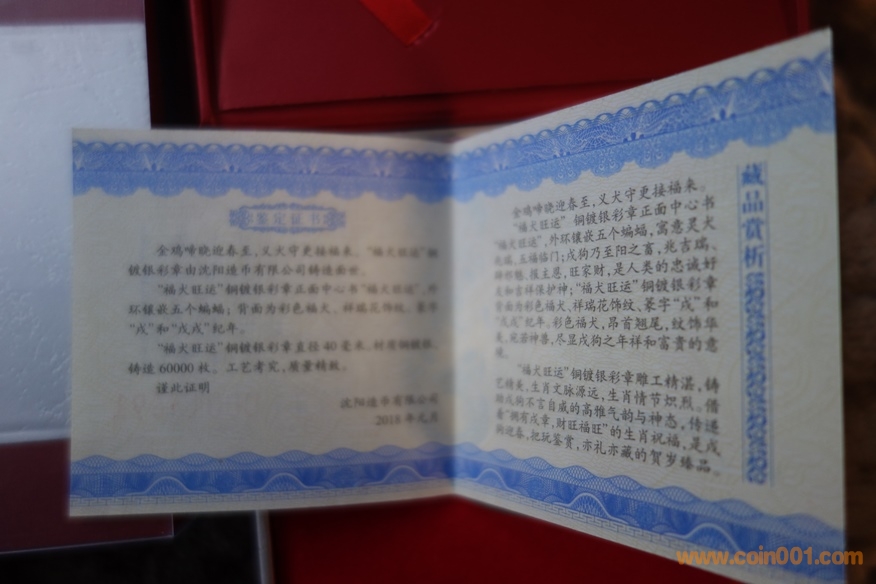 鉴定证书
金鸡啼晓迎春至，又犬守更接福来。“福犬旺运”铜
镀银彩章由沈阳造币有限公司铸造面世。
“福犬旺运”铜镀银彩章正面中心书“福犬旺运”，外
环镶嵌五个蝙蝠；背面为彩色福犬、祥瑞花饰纹、篆字
“戌”和“戊戌”纪年。
“福犬旺运”铜镀银彩章直径40毫米，材质铜镀银，
铸造60000枚。工艺考究，质量精致。
谨此证明
沈阳造币有限公司
2018年元月
藏品赏析
金鸡啼晓迎春至，又犬守更接福来。
“福犬旺运”铜镀银彩章正面中心书
“福犬旺运”，外环镶嵌五个蝙蝠，寓意灵犬
长瑞、五福临门；戌狗乃至阳之畜，兆吉瑞、
御邪魅、报主恩，旺家财，是人类的忠诚好
友和吉祥保护神；“福犬旺运”铜镀银彩章
背面为彩色福犬、祥瑞花饰纹、篆字“戌”和
“戊戌”纪年。彩色福犬，昂首翘尾，纹饰华
美，宛若神兽，尽显戊狗之年祥和富贵的意
境。
“福犬旺运”铜镀银彩章雕工精湛，铸
艺精美，生肖文脉源远，生肖情节炽烈。借
助戊狗不言自威的高雅气韵与神态，传递
着“拥有戌章，财旺福旺”的生肖祝福，是戌
狗迎春，把玩鉴赏，亦礼亦藏的贺岁臻品。
www.coin001.com